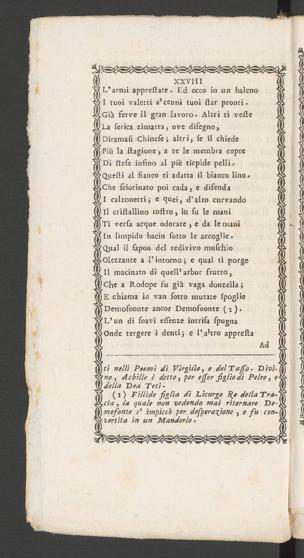 XXVIII
L'armi apprestate. Ed ecco in un baleno
I tuoi valetti a' cenni tuoi star pronti.
Già ferve il gran lavoro. Altri ti veste
La serica zimarra, ove disegno,
Diramasi Chinese; altri, se il chiede
Più la stagione, a te le membra copre
Di stese infino al piè tiepide pelli.
Questi al fianco ti adatta il bianco lino.
Che sciorinato poi cada, e difenda
I calzonetti; e quei, d'alto curvando
Il cristallino rostro, in su le mani
Ti versa acque odorate, e da le mani
In limpido bacin sotto le accoglie.
Qual il sapon del redivivo muschio
Olezzante a l'intorno; e qual ti porge
Il macinato di quell'arbor frutto,
Che a Rodope fu già vaga donzella;
E chiama in van sotto mutate spoglie
Demofoonte ancor Demofoonte (1).
L'un di soavi essenze intrisa spugna
Onde tergere i denti; e l'altro appresta
Ad
ti nelli Poemi di Virgilio, e del Tasso. Divi-
no, Achille è detto, per esser figlio di Peleo, e
della Dea Teti.
(1) Fillide figlia di Licurgo Re della Tra-
cia, la quale non vedendo mai ritornare De-
mofonte s' impiccò per desperazione, e fu con-
vertita in un Mandorlo.